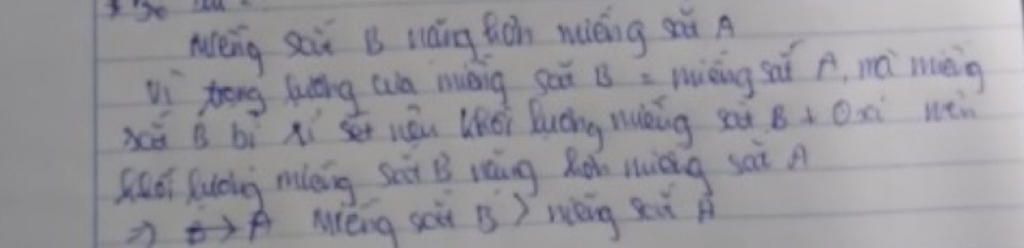 Miếng sắt B nặng hơn miếng sắt A
Vì trọng lượng của miếng sắt B = miếng sắt A, mà miếng
sắt B bị rỉ sét nên khối lượng miếng sắt B + Oxi nên
khối lượng miếng sắt B nặng hơn miếng sắt A
=> Miếng sắt B > miếng sắt A